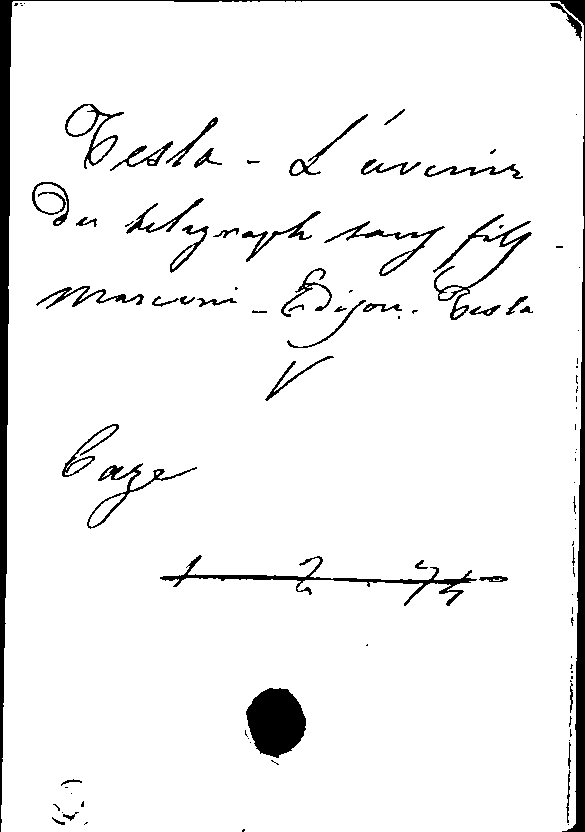 Tesla - L'avenir
du telegraph sans fils -
Marconi - Edison. Tesla
V
Caze
1 . 2 . 74